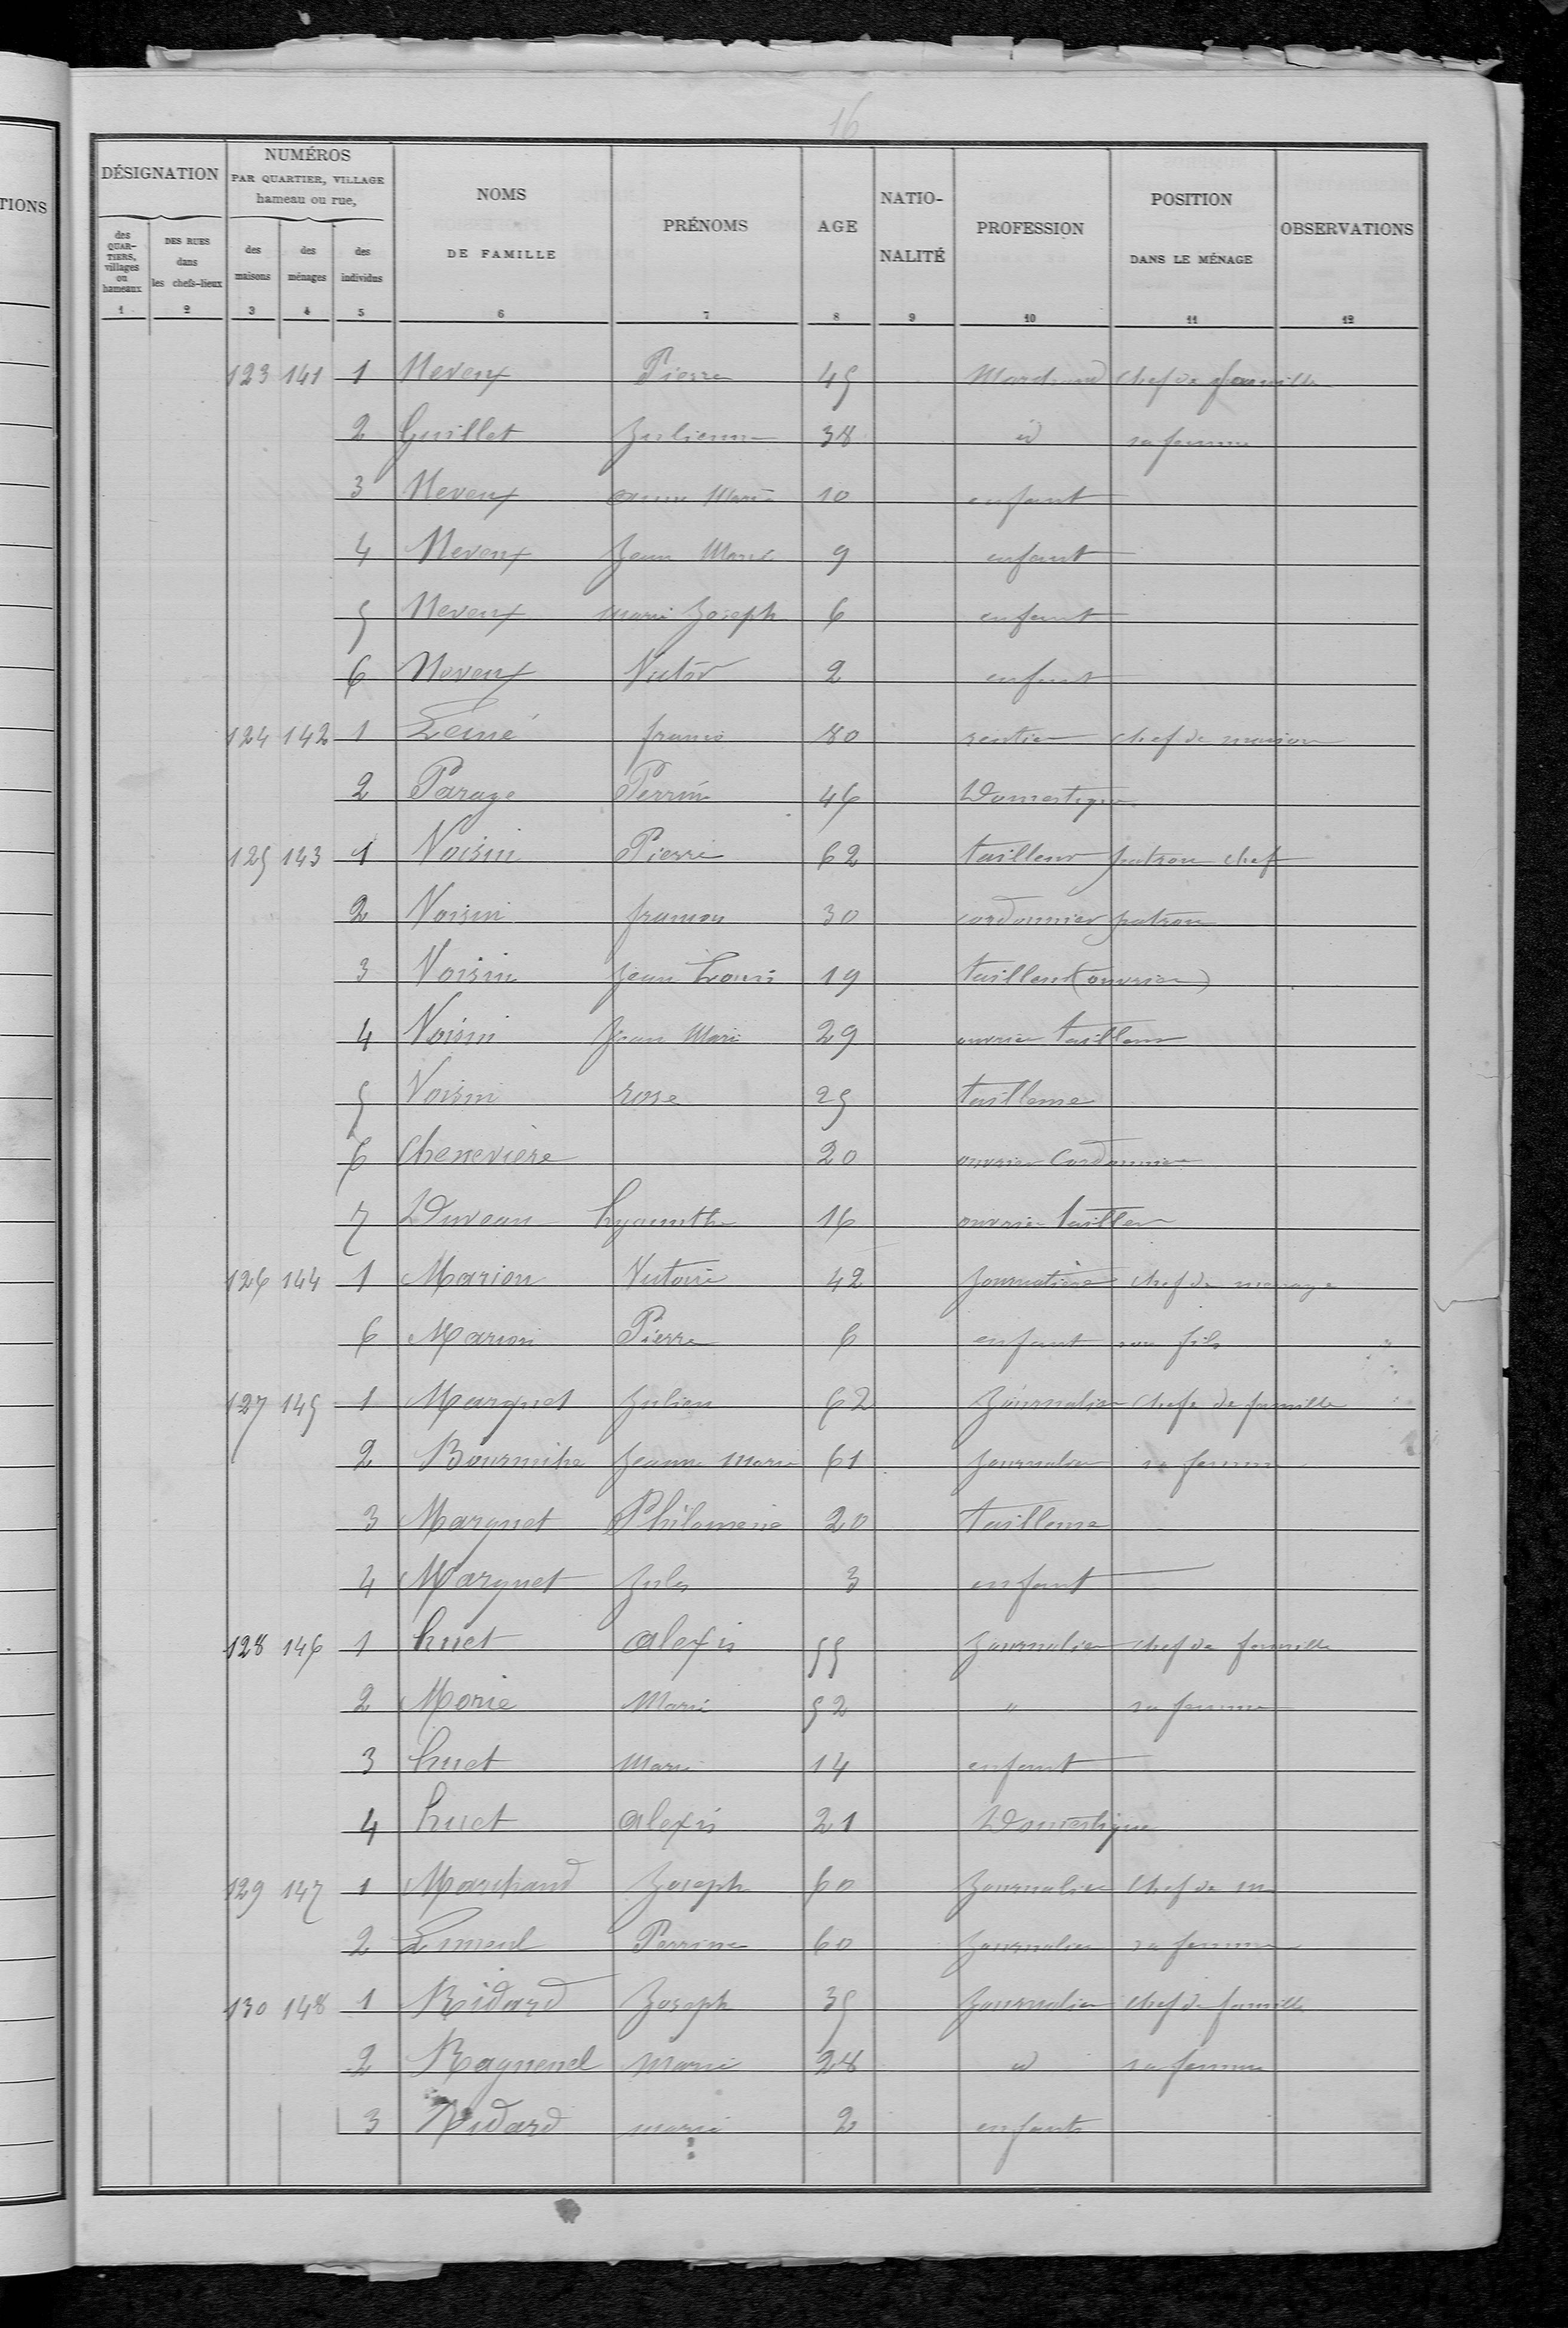 16
TIONS
DÉSIGNATION
des QUARTIERS, villages ou hameaux
DES RUES dans les chefs-lieux
NUMÉROS
PAR QUARTIER, VILLAGE
hameau ou rue,
des maisons
des ménages
des individus
NOMS
DE FAMILLE
PRÉNOMS
AGE
NATIO-
NALITÉ
PROFESSION
POSITION
DANS LE MÉNAGE
OBSERVATIONS
1 2 3 4 5 6 7 8 9 10 11 12
123 141 1 Neveux Pierre 45 Marchand chef de famille
2 Guillet Julienne 38 id sa femme
3 Neveux anne Marie 10 enfant
4 Neveux Jean Marie 9 enfant
5 Neveux marie Joseph 6 enfant
6 Neveux Victor 2 enfant
124 142 1 francis 80 rentier chef de maison
2 Parage Perrine 46 Domestique
125 143 1 Voisin Pierre 62 tailleur patron chef
2 Voisin 30 cordonnier patron
3 Voisin jean Louis 19 tailleur (ouvrier)
4 Voisin Jean Marie 29 ouvrier tailleur
5 Voisin rose 25 tailleuse
6 Chenevière 20 ouvrier Cordonnier
7 Duveau hyacinthe 16 ouvrier tailleur
126 144 1 Marion Victoire 42 journalière chef de menage
6 Marion Pierre 6 enfant son fils
127 145 1 Marquet Julien 62 Journalier chef de famille
2 Jeanne Marie 61 journalier sa femme
3 Marquet Philomene 20 tailleuse
4 Marquet Jules 3 enfant
128 146 1 huet alexis 55 Journalier chef de famille
2 Morie Marie 52 " sa femme
3 huet Marie 14 enfant
4 huet alexis 21 Domestique
129 147 1 Marchand Joseph 60 Journalier chef de m
2 Perrine 60 Journalier sa femme
130 148 1 Ridard Joseph 35 Journalier chef de famille
2 Raguenel Marie 28 id sa femme
3 Ridard marie 2 enfants